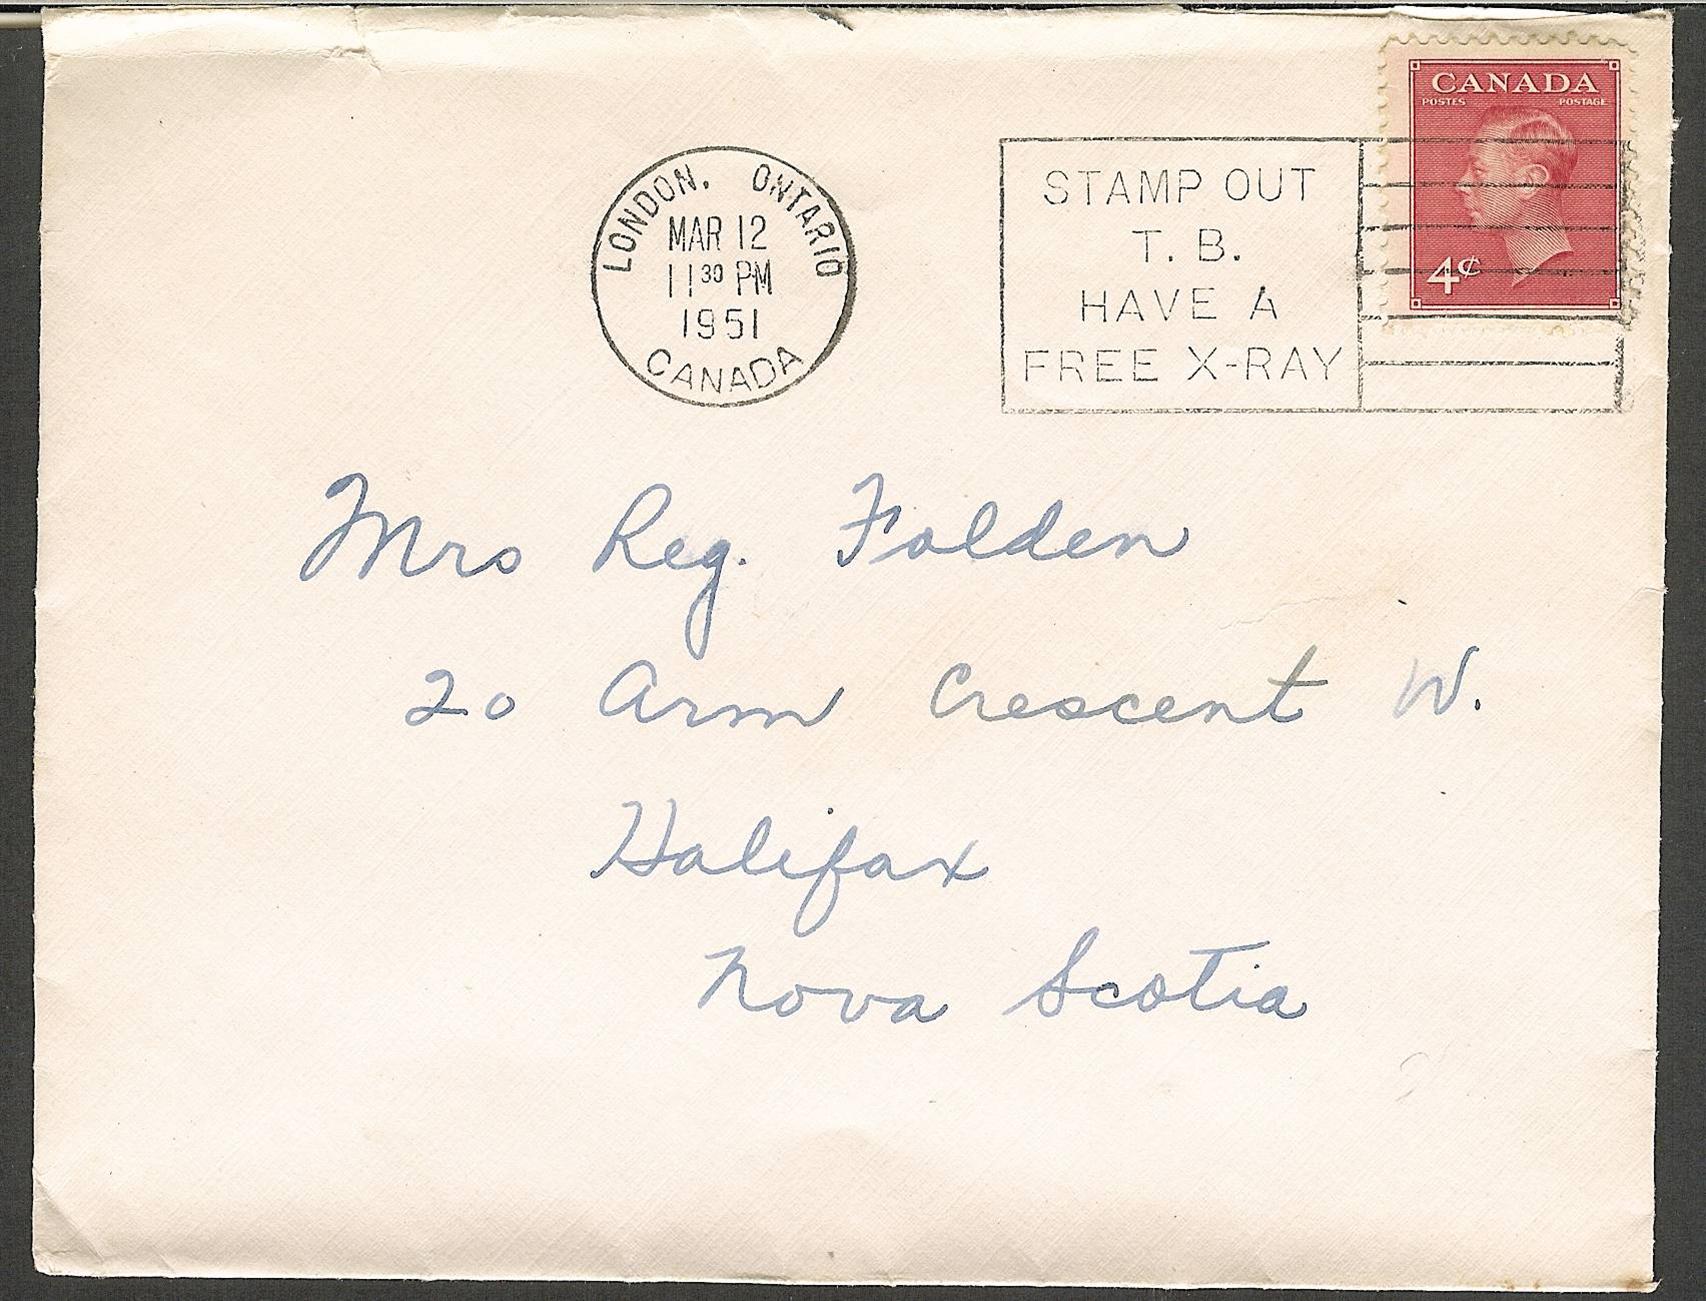 CANADA
POSTES POSTAGE
4¢
LONDON, ONTARIO
MAR 12
11 30 PM
1951
CANADA
STAMP OUT
T. B.
HAVE A
FREE X-RAY
Mrs Reg. Folden
20 Arm Crescent W.
Halifax
Nova Scotia